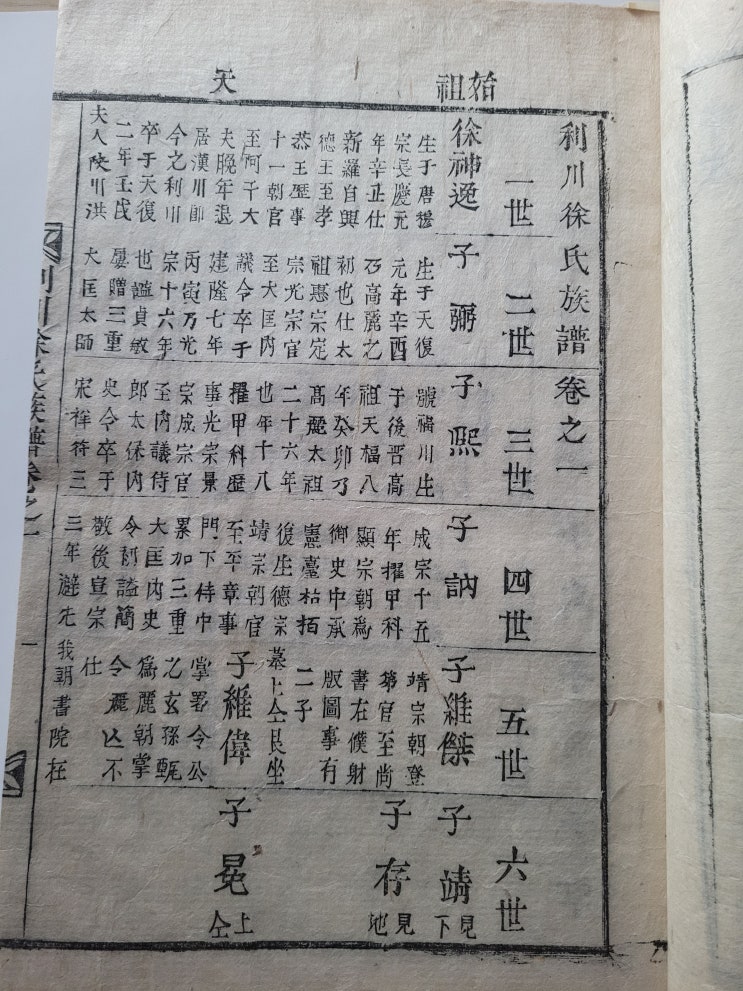 始祖
天
利川徐氏族譜 卷之一
一世
徐神逸
生于唐穆
宗長慶元
年辛丑仕
新羅自興
德王至孝
恭王歷事
十一朝官
至阿干大
夫晚年退
居漢川卽
今之利川
卒于天復
二年壬戌
夫人陝川洪
二世
子弼
生于天復
元年辛酉
乃高麗之
初也仕太
祖惠宗定
宗光宗官
至大匡內
議令卒于
建隆七年
丙寅乃光
宗十六年
也謚貞敏
屢贈三重
大匡太師
三世
子熙
號福川生
于後晋高
祖天福八
年癸卯乃
高麗太祖
二十六年
也年十八
擢甲科歷
事光宗景
宗成宗官
至內議侍
郎太保內
史令卒于
宋祥符三
四世
子訥
成宗十五
年擢甲科
顯宗朝爲
御史中承
憲臺枯栢
復生德宗
靖宗朝官
至平章事
門下侍中
累加三重
大匡內史
令謚簡
敬後宣宗
三年避先
五世
子維傑
靖宗朝登
第官至尚
書左僕射
版圖事有
二子
墓上仝艮坐
子維偉
掌署令公
之玄孫甄
爲麗朝掌
令麗亾不
仕
我朝書院在
六世
子靖 見下
子存 見地
子冕 上仝
利川徐氏族譜卷之一
一